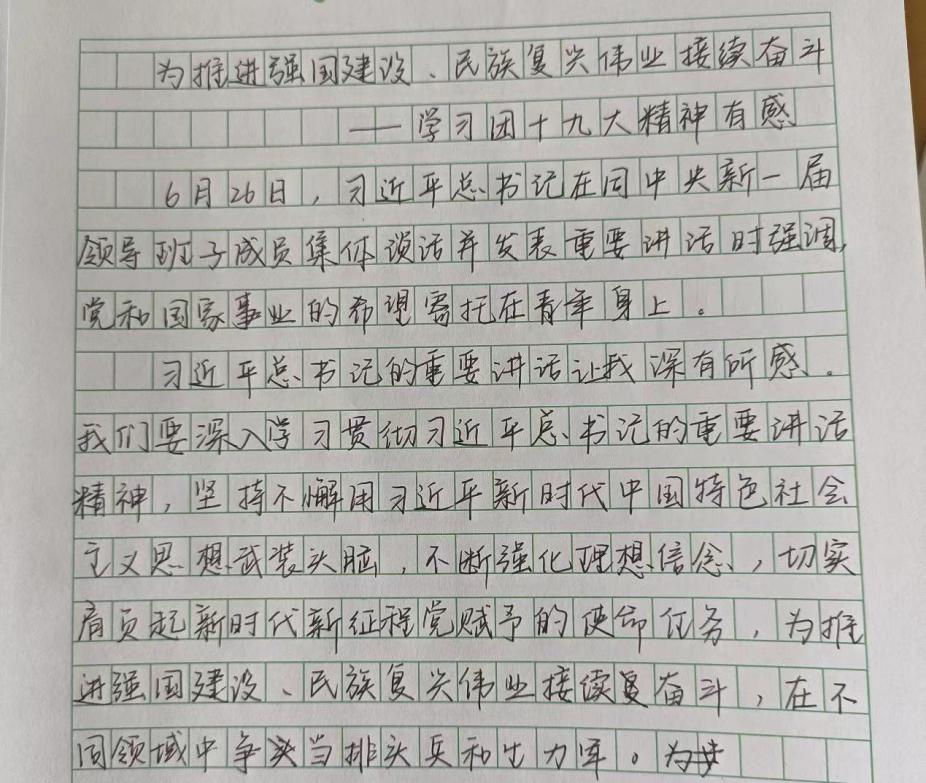 为推进强国建设、民族复兴伟业接续奋斗
——学习团十九大精神有感
6月26日，习近平总书记在同中央新一届
领导班子成员集体谈话并发表重要讲话时强调，
党和国家事业的希望寄托在青年身上。
习近平总书记的重要讲话让我深有所感。
我们要深入学习贯彻习近平总书记的重要讲话
精神，坚持不懈用习近平新时代中国特色社会
主义思想武装头脑，不断强化理想信念，切实
肩负起新时代新征程党赋予的使命任务，为推
进强国建设、民族复兴伟业接续奋斗，在不
同领域中争当排头兵和生力军。为